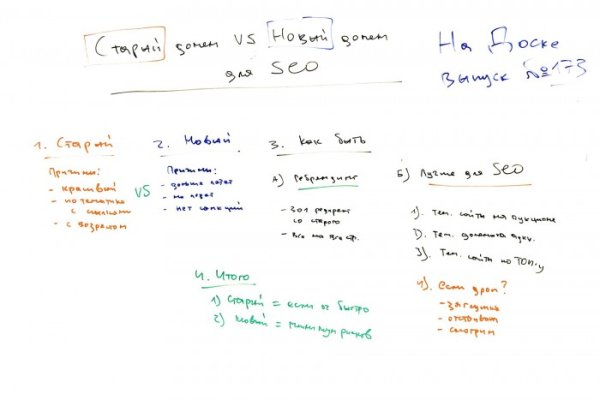 Старый домен VS Новый домен
для SEO
На Доске
выпуск №173
1. Старый
Причины:
- красивый
- по тематике
с ссылками
- с возрастом
VS
2. Новый
Причины:
- дольше
- нет санкций
3. Как быть
А) Ребрендинг
- 301 редирект
со старого
- Все на все стр.
Б) Лучше для SEO
1). Тем. сайты на аукционе
2). Тем. домены аукц.
3). Тем. сайты по ТОП-у
4). Если дроп?
- заглушка
- отстойник
- смотрим
4. Итого
1) Старый = если оч быстро
2) Новый = минимум рисков